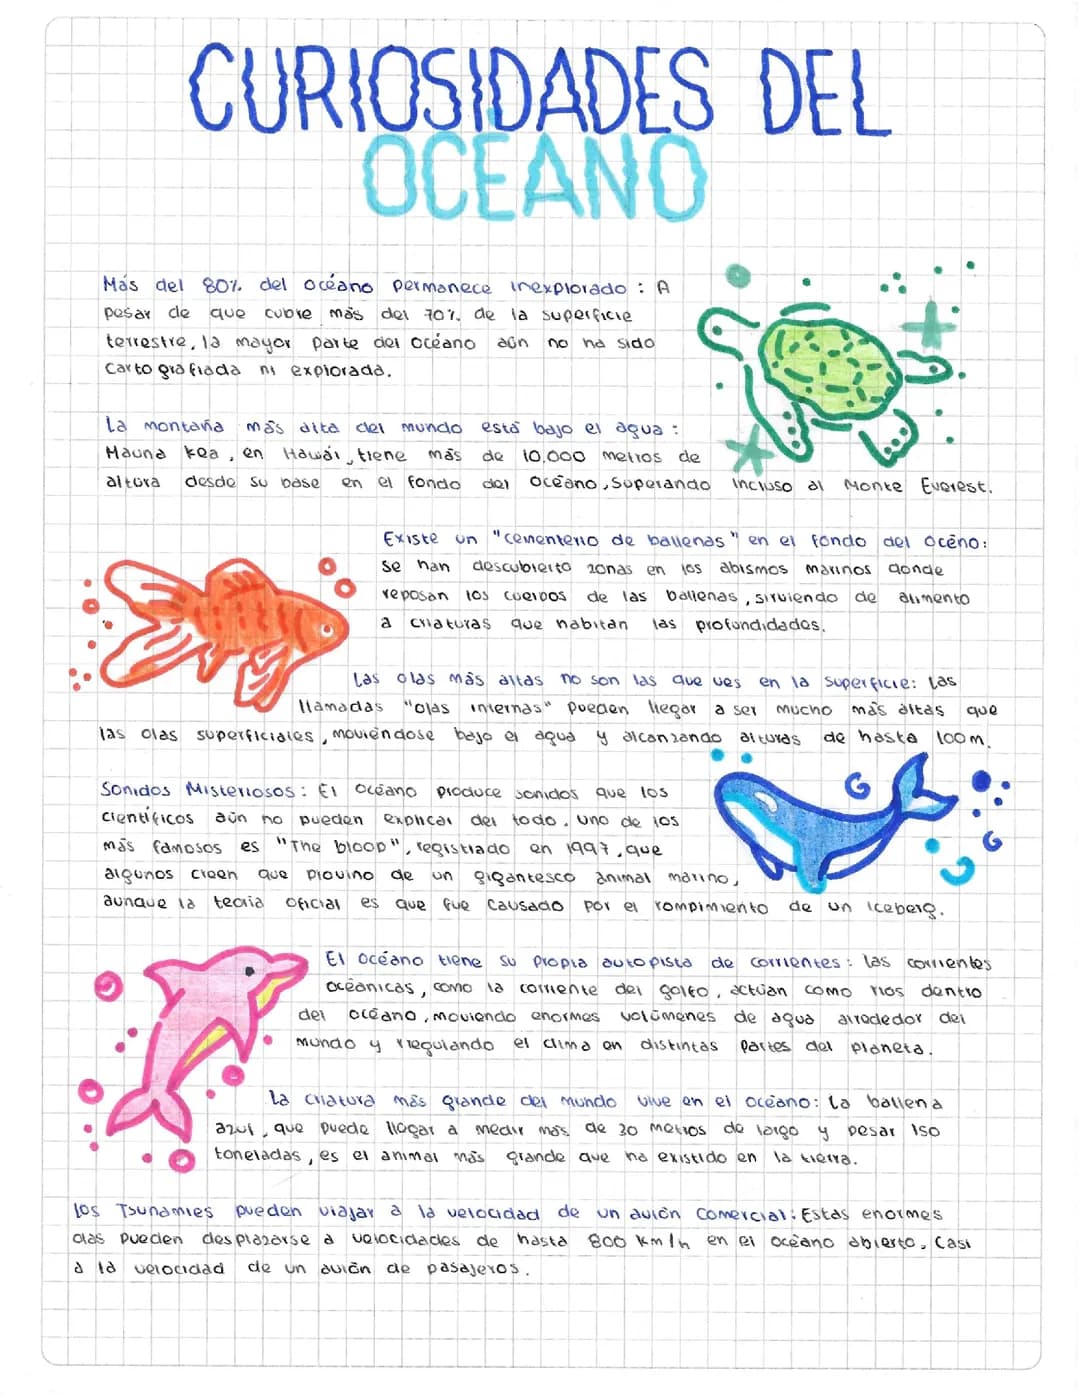 CURIOSIDADES DEL
OCÉANO
Más del 80% del océano permanece inexplorado : A
pesar de que cubre más del 70% de la superficie
terrestre, la mayor parte del océano aún no ha sido
cartografiada ni explorada.
La montaña más alta del mundo está bajo el agua :
Mauna Kea, en Hawái, tiene más de 10,000 metros de
altura desde su base en el fondo del océano, superando incluso al Monte Everest.
Existe un "cementerio de ballenas" en el fondo del océno:
Se han descubierto zonas en los abismos marinos donde
reposan los cuerpos de las ballenas, sirviendo de alimento
a criaturas que habitan las profundidades.
Las olas más altas no son las que ves en la superficie: Las
llamadas "olas internas" pueden llegar a ser mucho más altas que
las olas superficiales, moviéndose bajo el agua y alcanzando alturas de hasta 100m.
Sonidos Misteriosos: El océano produce sonidos que los
científicos aún no pueden explicar del todo. Uno de los
más famosos es "The bloop", registrado en 1997, que
algunos creen que provino de un gigantesco animal marino,
aunque la teoría oficial es que fue causado por el rompimiento de un iceberg.
El océano tiene su propia autopista de corrientes: las corrientes
oceánicas, como la corriente del golfo, actúan como ríos dentro
del océano, moviendo enormes volúmenes de agua alrededor del
mundo y regulando el clima en distintas partes del planeta.
La criatura más grande del mundo vive en el océano: La ballena
azul, que puede llegar a medir más de 30 metros de largo y pesar 150
toneladas, es el animal más grande que ha existido en la tierra.
Los Tsunamies pueden viajar a la velocidad de un avión comercial: Estas enormes
olas pueden desplazarse a velocidades de hasta 800 km/h en el océano abierto. Casi
a la velocidad de un avión de pasajeros.